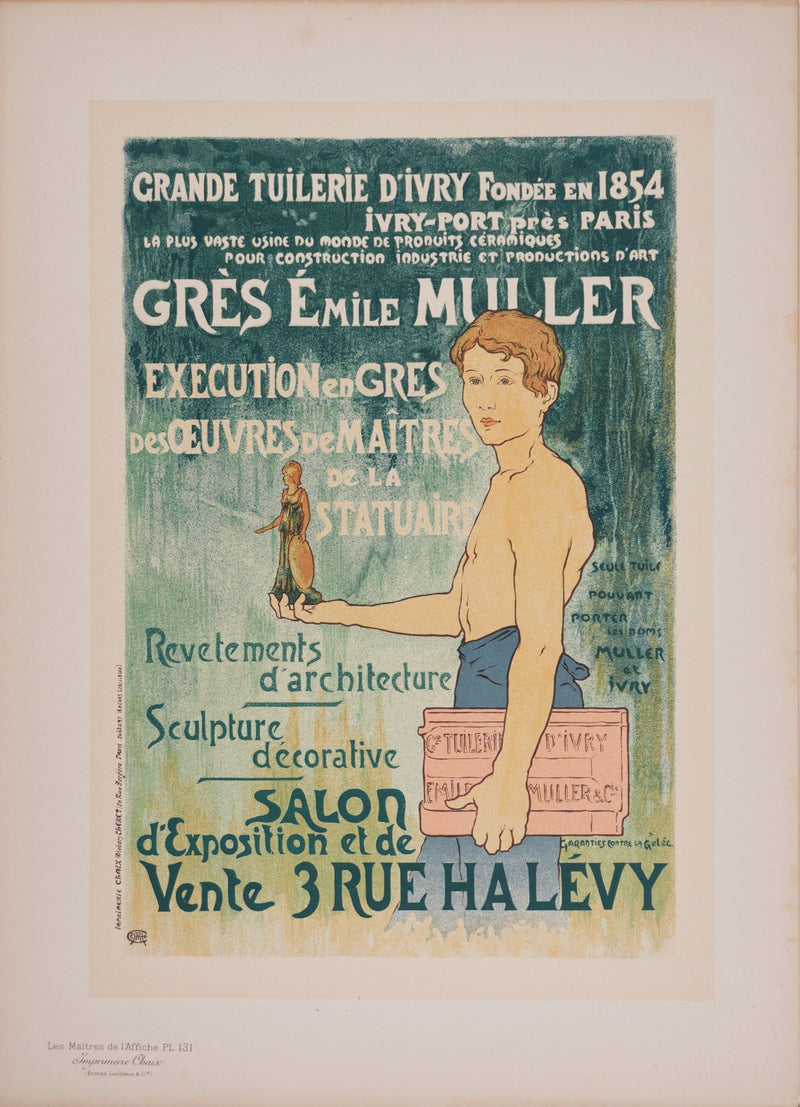 GRANDE TUILERIE D'IVRY FONDÉE EN 1854
IVRY-PORT près PARIS
LA PLUS VASTE USINE DU MONDE DE PRODUITS CÉRAMIQUES
POUR CONSTRUCTION INDUSTRIE ET PRODUCTIONS D'ART
GRÈS ÉMILE MULLER
EXECUTION en GRÈS
Des ŒUVRES De MAÎTRES
DE LA
STATUAIRE
SEULE TUILE
POUVANT
PORTER
LES NOMS
MULLER
et
IVRY
Revetements
d'architecture
Sculpture
décorative
Gde TUILERIE D'IVRY
EMILE MULLER & Cie
GARANTIES CONTRE LA Gelée
SALON
d'Exposition et de
Vente 3 RUE HALÉVY
Imprimerie CHAIX (Ateliers CHERET) 20, Rue Bergère, Paris (Encres Lorilleux)
Les Maîtres de l'Affiche PL. 131
Imprimerie Chaix
(Encres Lorilleux & Cie)